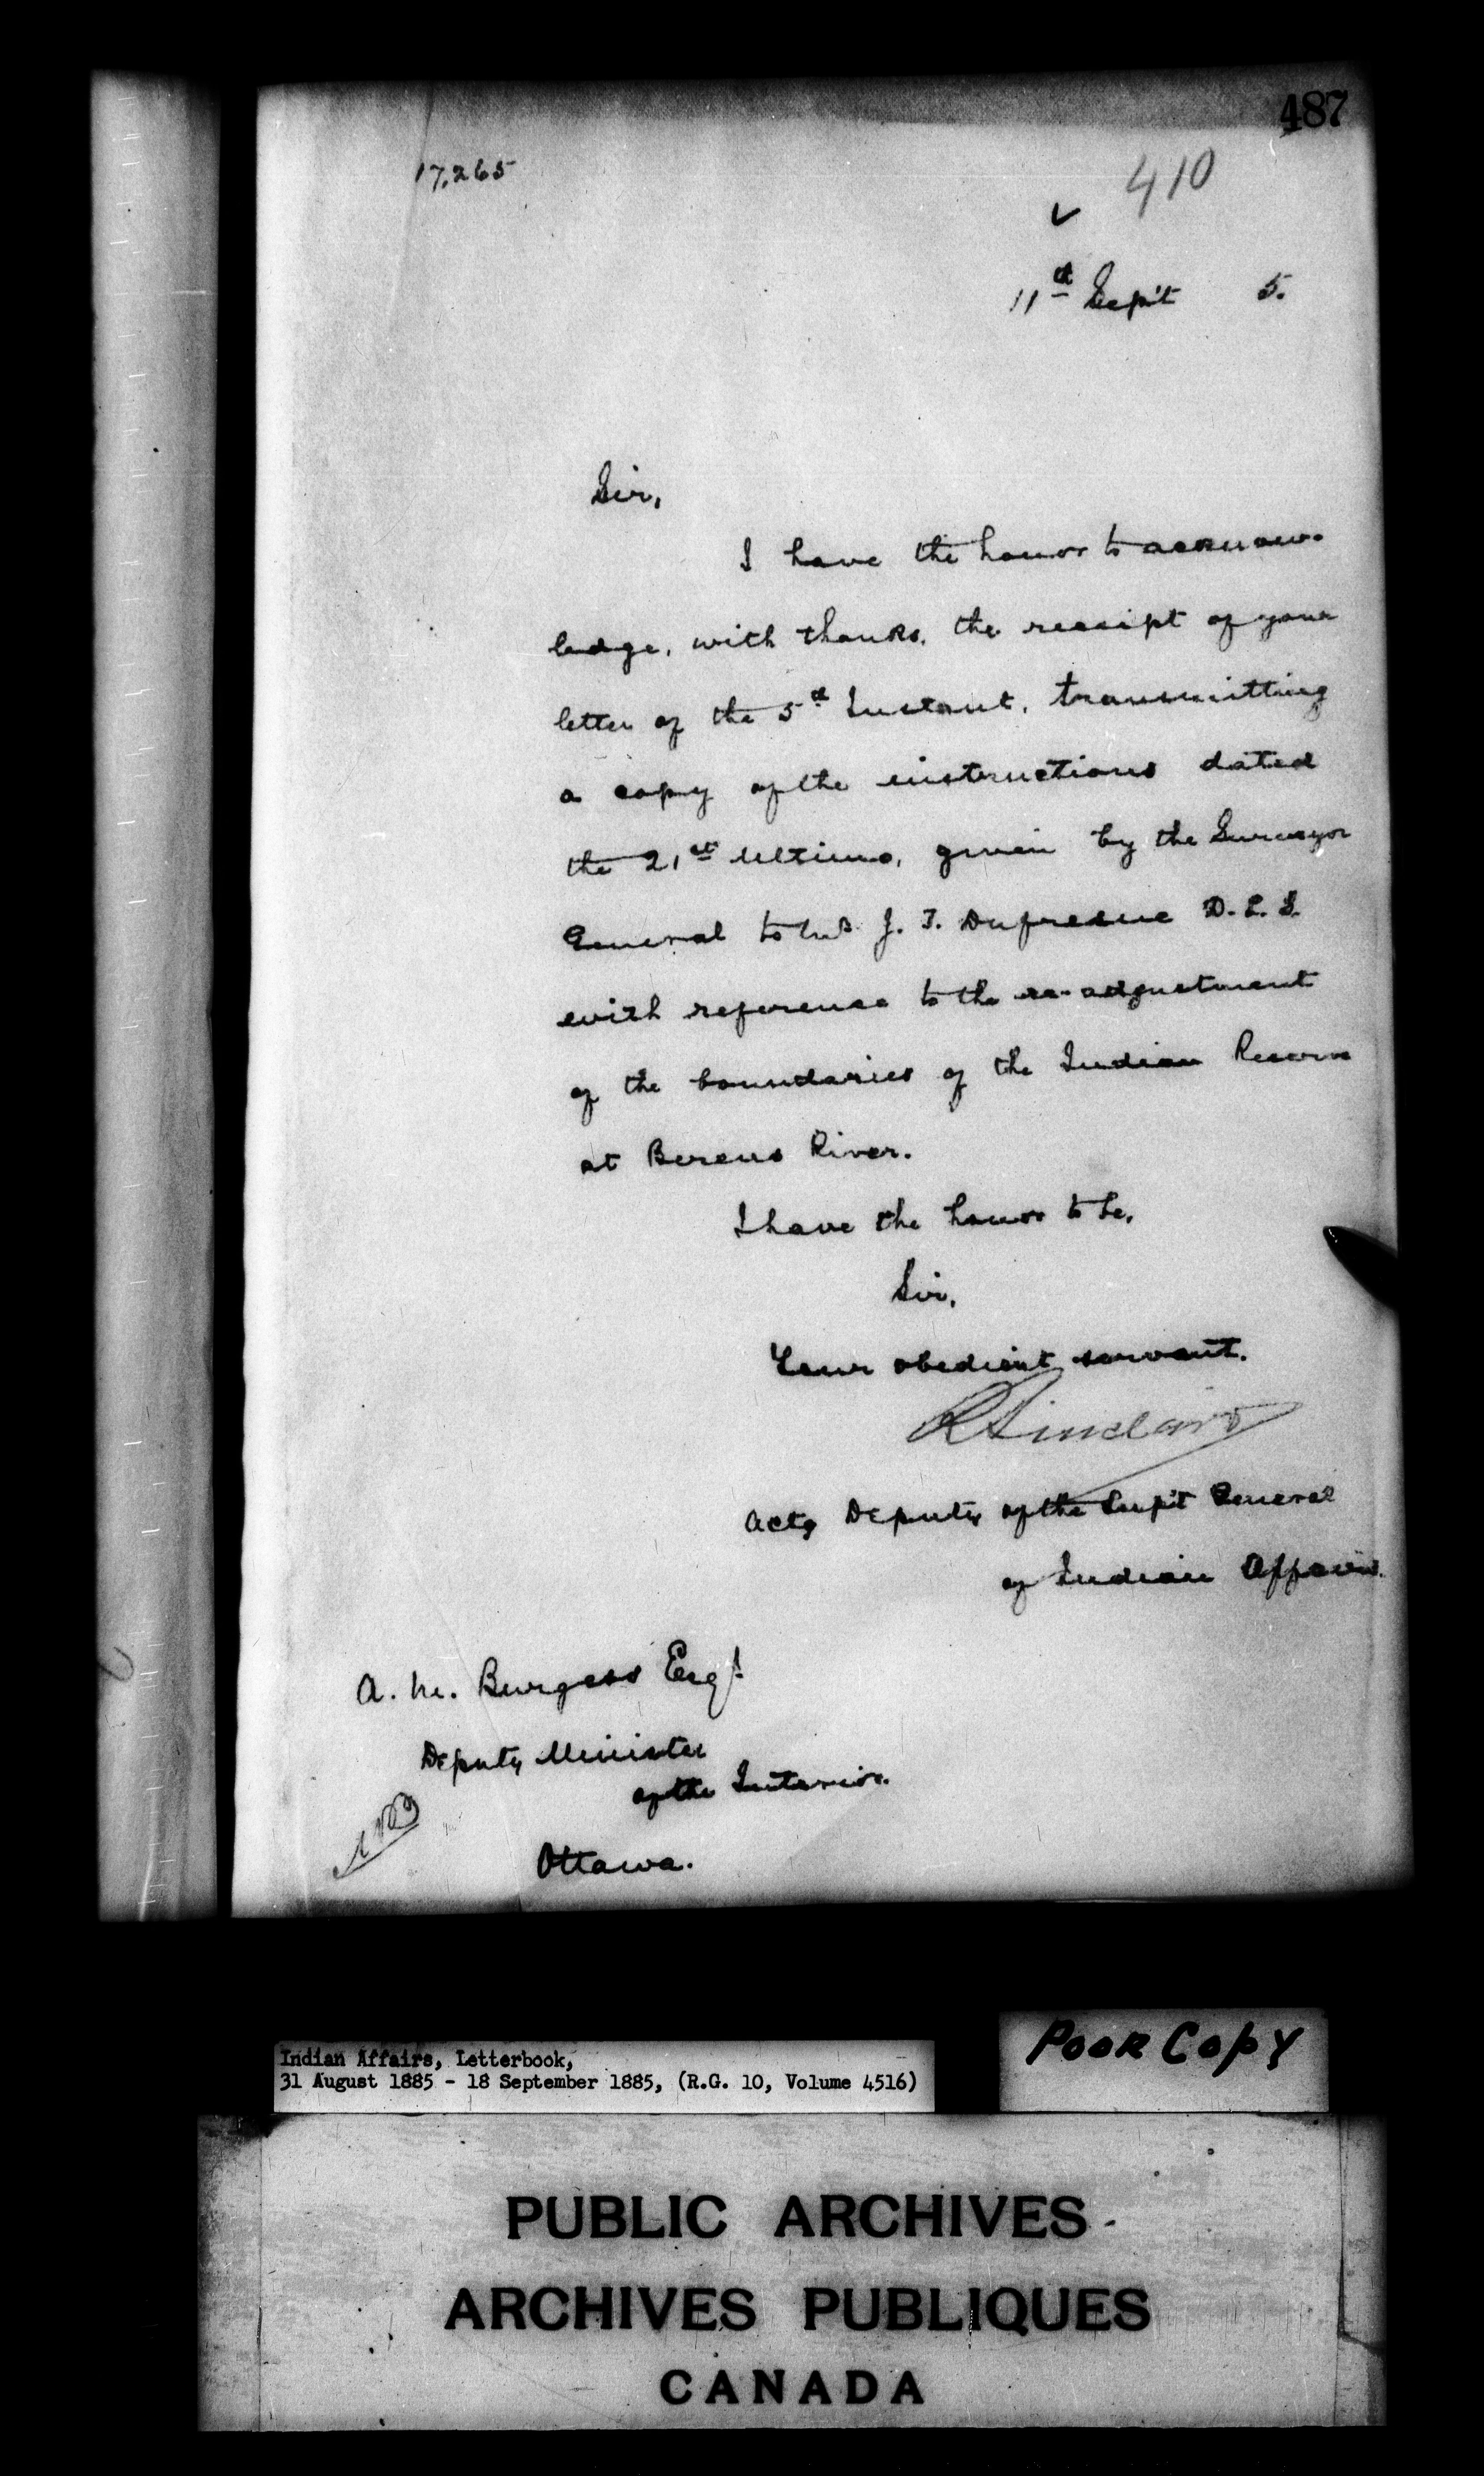 487
17,265
410
11th Sept 5.
Sir,
I have the honor to acknow-
ledge, with thanks, the receipt of your
letter of the 5th Instant, transmitting
a copy of the instructions dated
the 21st Ultimo, given by the Surveyor
General to Mr. J. I. Dufresne D.L.S.
with reference to the re-adjustment
of the boundaries of the Indian Reserve
at Berens River.
I have the honor to be,
Sir,
Your obedient servant.
R Sinclair
Actg Deputy of the Supt General
of Indian Affairs.
A. M. Burgess Esqr
Deputy Minister
of the Interior.
Ottawa.
Indian Affairs, Letterbook,
31 August 1885 - 18 September 1885, (R.G. 10, Volume 4516)
POOR COPY
PUBLIC ARCHIVES
ARCHIVES PUBLIQUES
CANADA